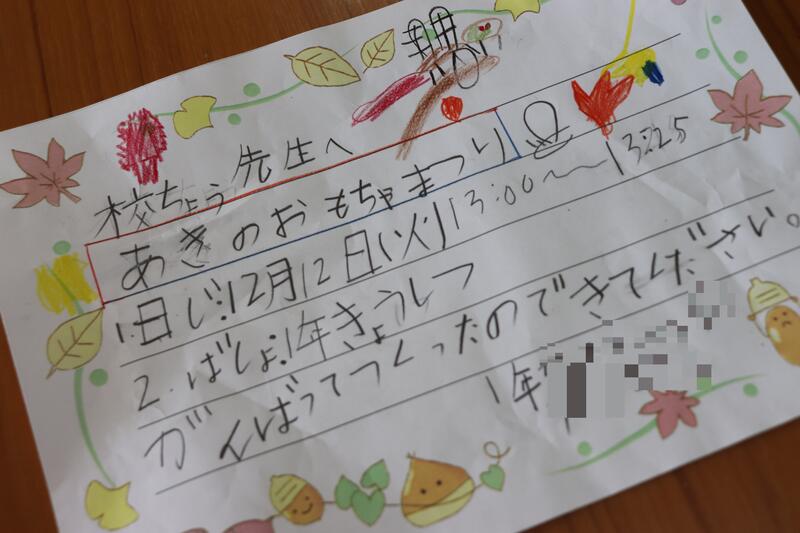 校ちょう先生へ
あきのおもちゃまつり
1.日じ:12月12日(火)13:00〜13:25
2.ばしょ:1年きょうしつ
がんばってつくったのできてください。
1年